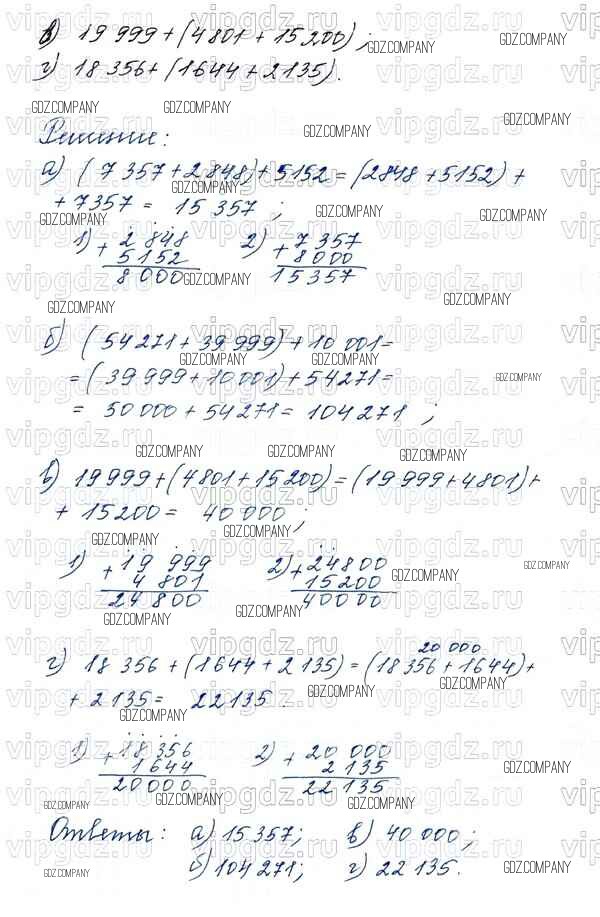 в) 19 999 + (4801 + 15 200) ;
г) 18 356 + (1644 + 2135).
Решение:
а) (7357 + 2848) + 5152 = (2848 + 5152) +
+ 7357 = 15 357 ;
1) + 2 848 2) + 7357
5152 8 000
8 000 15357
б) (54271 + 39 999) + 10 001 =
= (39 999 + 10 001) + 54271 =
= 50 000 + 54271 = 104271 ;
в) 19 999 + (4801 + 15 200) = (19 999 + 4801) +
+ 15200 = 40 000 ;
1) + 19 999 2) + 24800
4 801 15200
24 800 40000
20 000
г) 18 356 + (1644 + 2135) = (18 356 + 1644) +
+ 2135 = 22135 .
1) + 18 356 2) + 20 000
1644 2 135
20000 22 135
Ответы: а) 15357; в) 40 000;
б) 104271; г) 22 135.
GDZ.COMPANY
vipgdz.ru